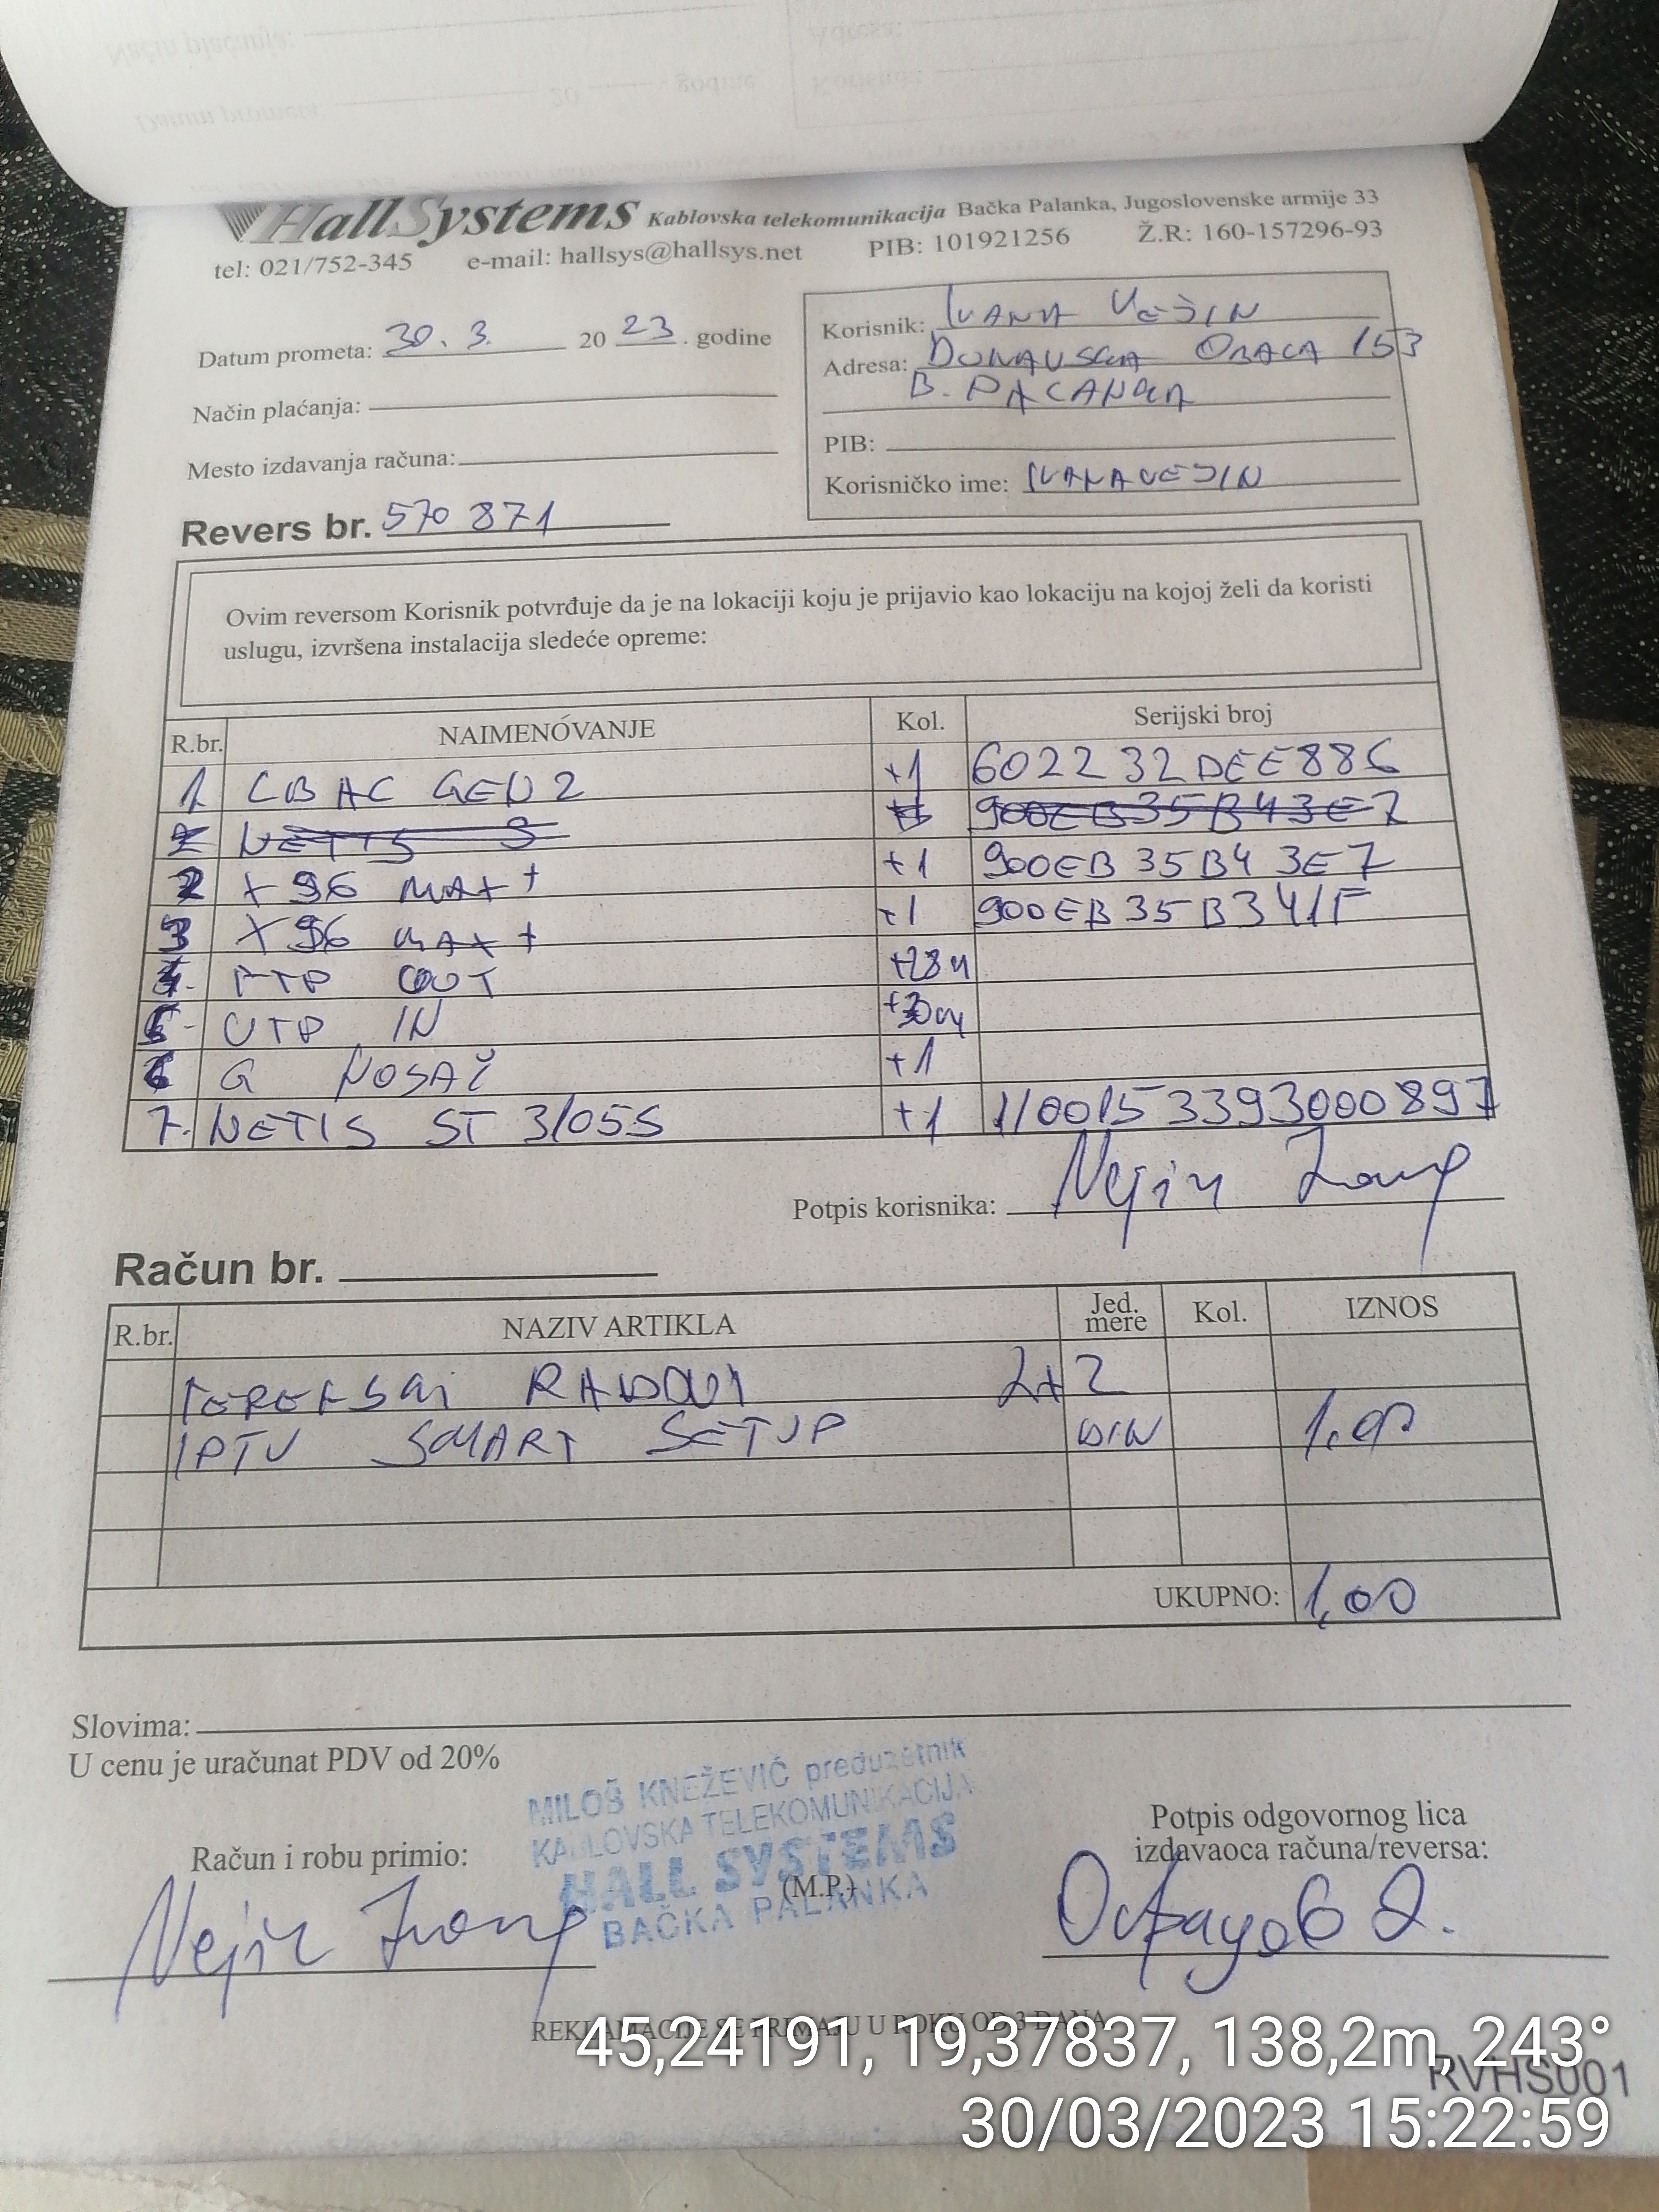 HallSystems Kablovska telekomunikacija Bačka Palanka, Jugoslovenske armije 33
tel: 021/752-345 e-mail: hallsys@hallsys.net PIB: 101921256 Ž.R: 160-157296-93
Datum prometa: 30. 3. 20 23. godine
Način plaćanja:
Mesto izdavanja računa:
Revers br. 570 871
Korisnik: IVANA VEJIN
Adresa: DUNAVSKA OBALA 153
B. PALANKA
PIB:
Korisničko ime: IVANAVEJIN
Ovim reversom Korisnik potvrđuje da je na lokaciji koju je prijavio kao lokaciju na kojoj želi da koristi
uslugu, izvršena instalacija sledeće opreme:
R.br. NAIMENÓVANJE Kol. Serijski broj
1 LBAC GEN2 +1 602232DEE886
2 NETIS 900EB35B43E7
2 X96 MAX+ +1 900EB35B43E7
3 X96 MAX+ +1 900EB35B341F
4. FTP OUT +28m
5. UTP IN +30m
6 G NOSAČ +1
7. NETIS ST 3105S +1 1100153393000897
Potpis korisnika:
Račun br.
R.br. NAZIV ARTIKLA Jed. mere Kol. IZNOS
TERENSKI RADOVI 2x2
IPTV SMART SETUP DIN 1,00
UKUPNO: 1,00
Slovima:
U cenu je uračunat PDV od 20%
MILOŠ KNEŽEVIĆ preduzetnik
KABLOVSKA TELEKOMUNIKACIJA
HALL SYSTEMS
(M.P.)
BAČKA PALANKA
Račun i robu primio:
Potpis odgovornog lica
izdavaoca računa/reversa:
REKLAMACIJE SE PRIMAJU U ROKU OD 3 DANA
45,24191, 19,37837, 138,2m, 243°
RVHS001
30/03/2023 15:22:59